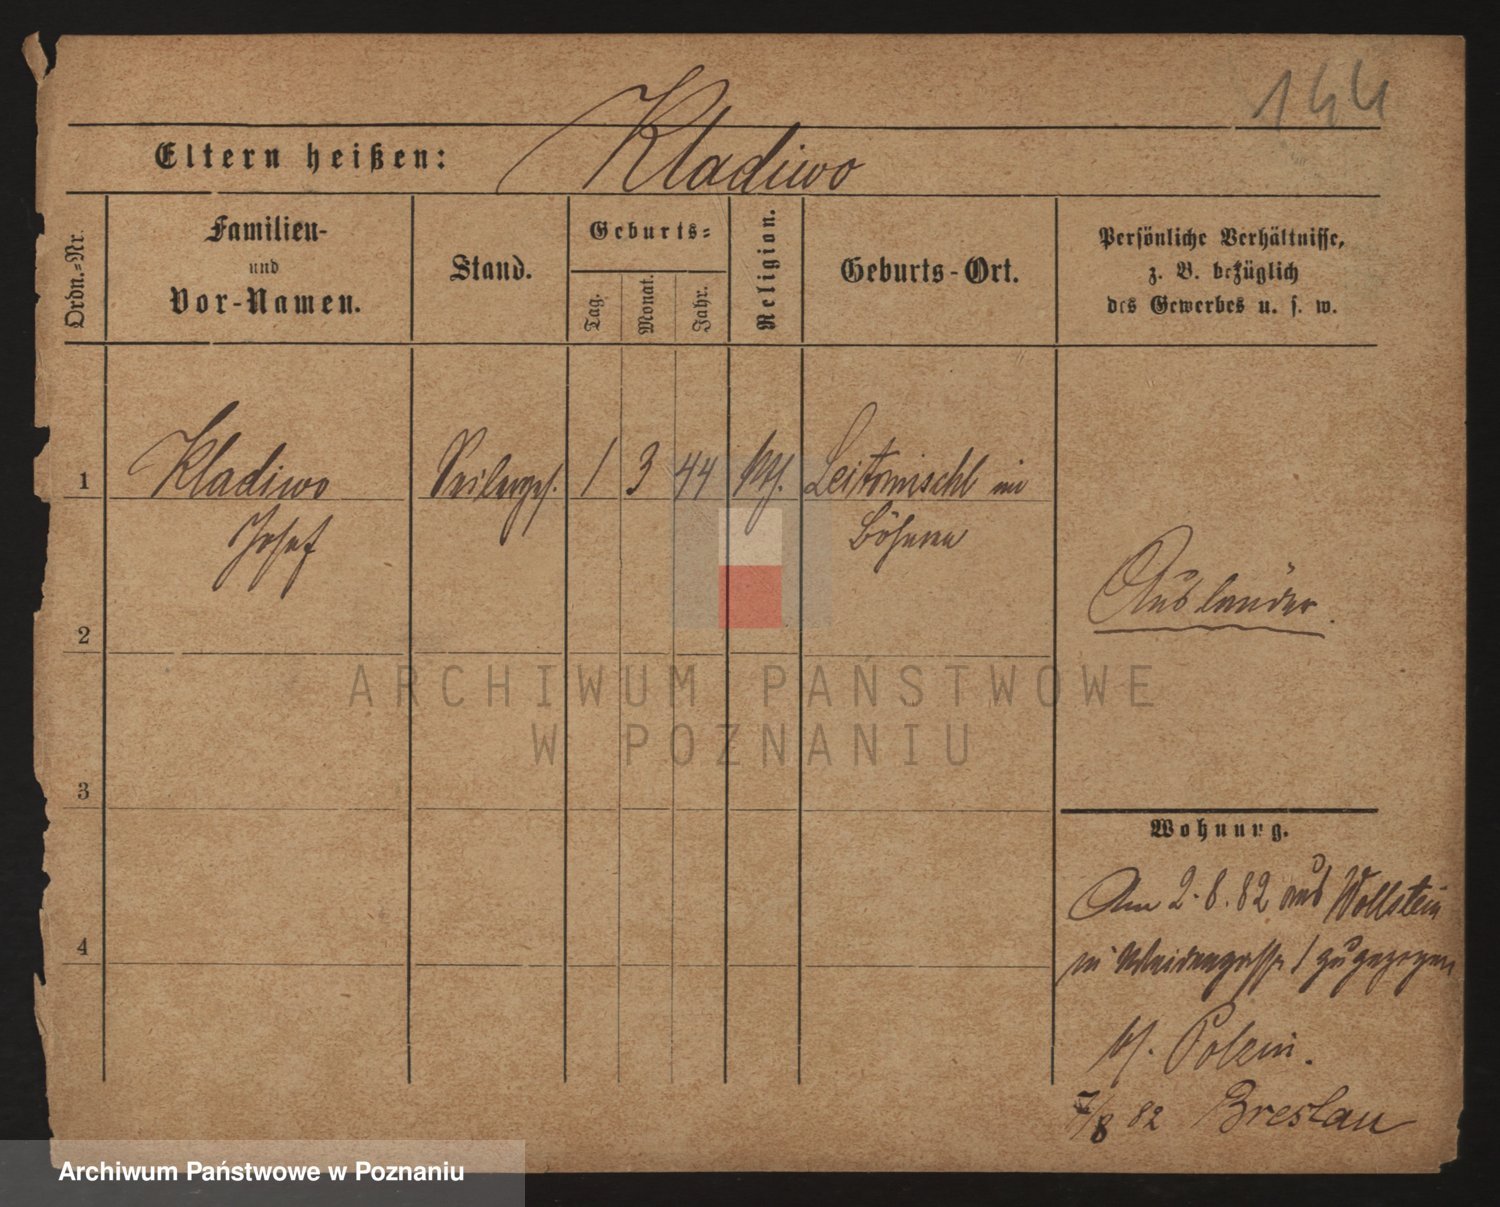 144
Eltern heißen: Kladiwo
Ordn.-Nr.
Familien-
und
Vor-Namen.
Stand.
Geburts-
Tag.
Monat.
Jahr.
Religion.
Geburts-Ort.
Persönliche Verhältnisse,
z. B. bezüglich
des Gewerbes u. s. w.
1 Kladiwo Seilerges. 1 3 44 kth. Leitomischl in
Josef Böhmen
Ausländer.
2
3
4
Wohnung.
Am 2. 8. 82 aus Wollstein
zugezogen
7/8 82 Breslau
ARCHIWUM PAŃSTWOWE
W POZNANIU
Archiwum Państwowe w Poznaniu